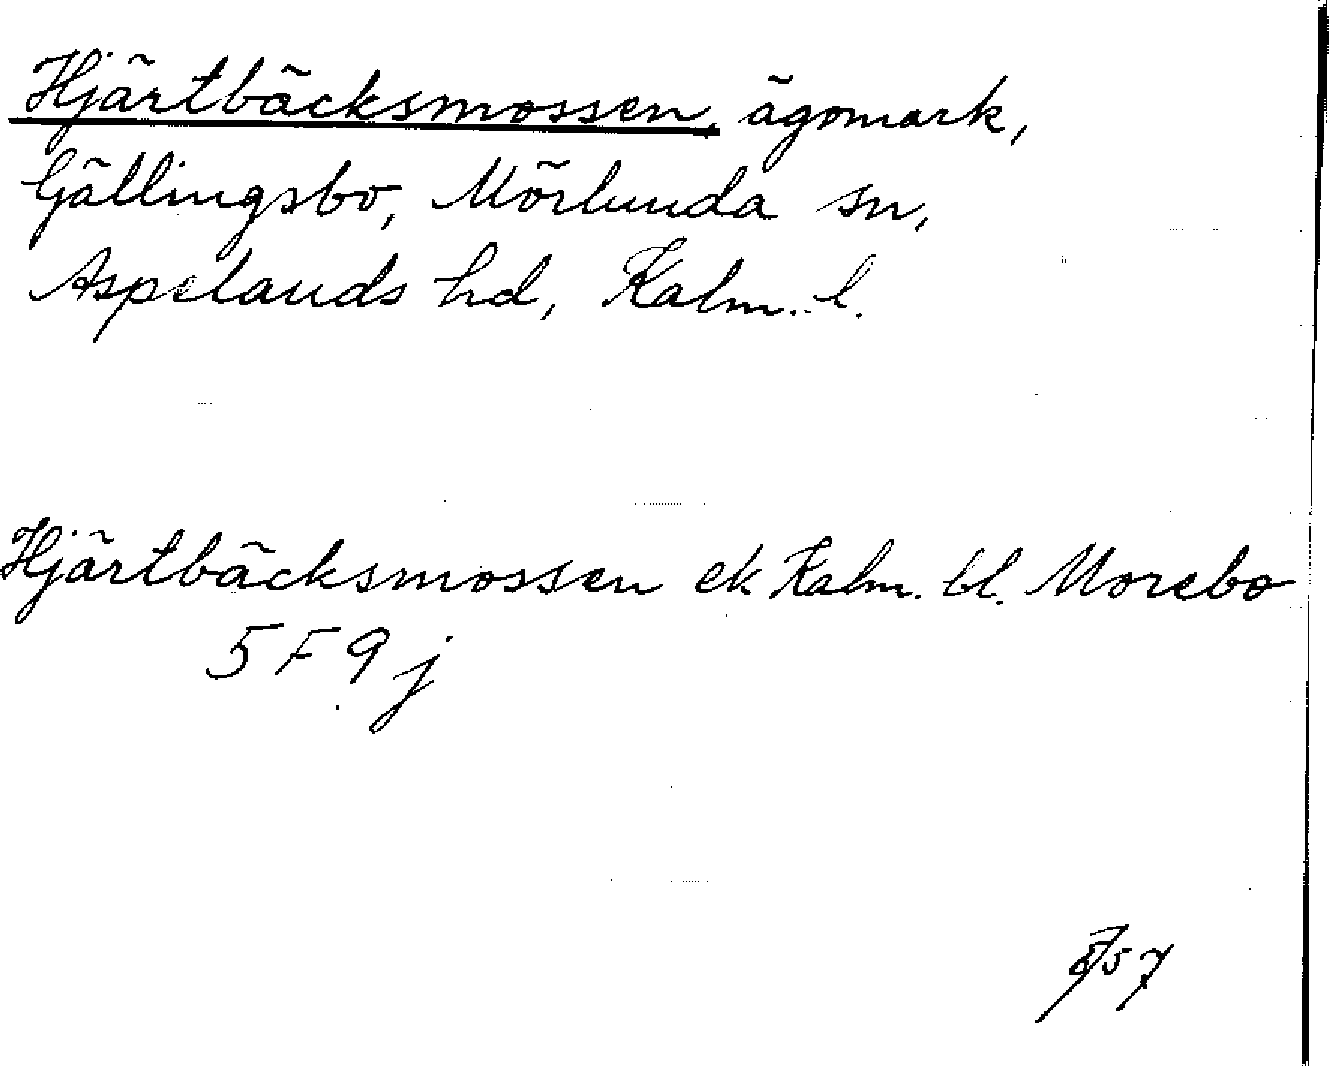 Hjärtbäcksmossen, ägomark,
Gällingsbo, Mörlunda sn,
Aspelands hd, Kalm. l.
Hjärtbäcksmossen ek Kalm. bl. Morebo
5 F 9 j